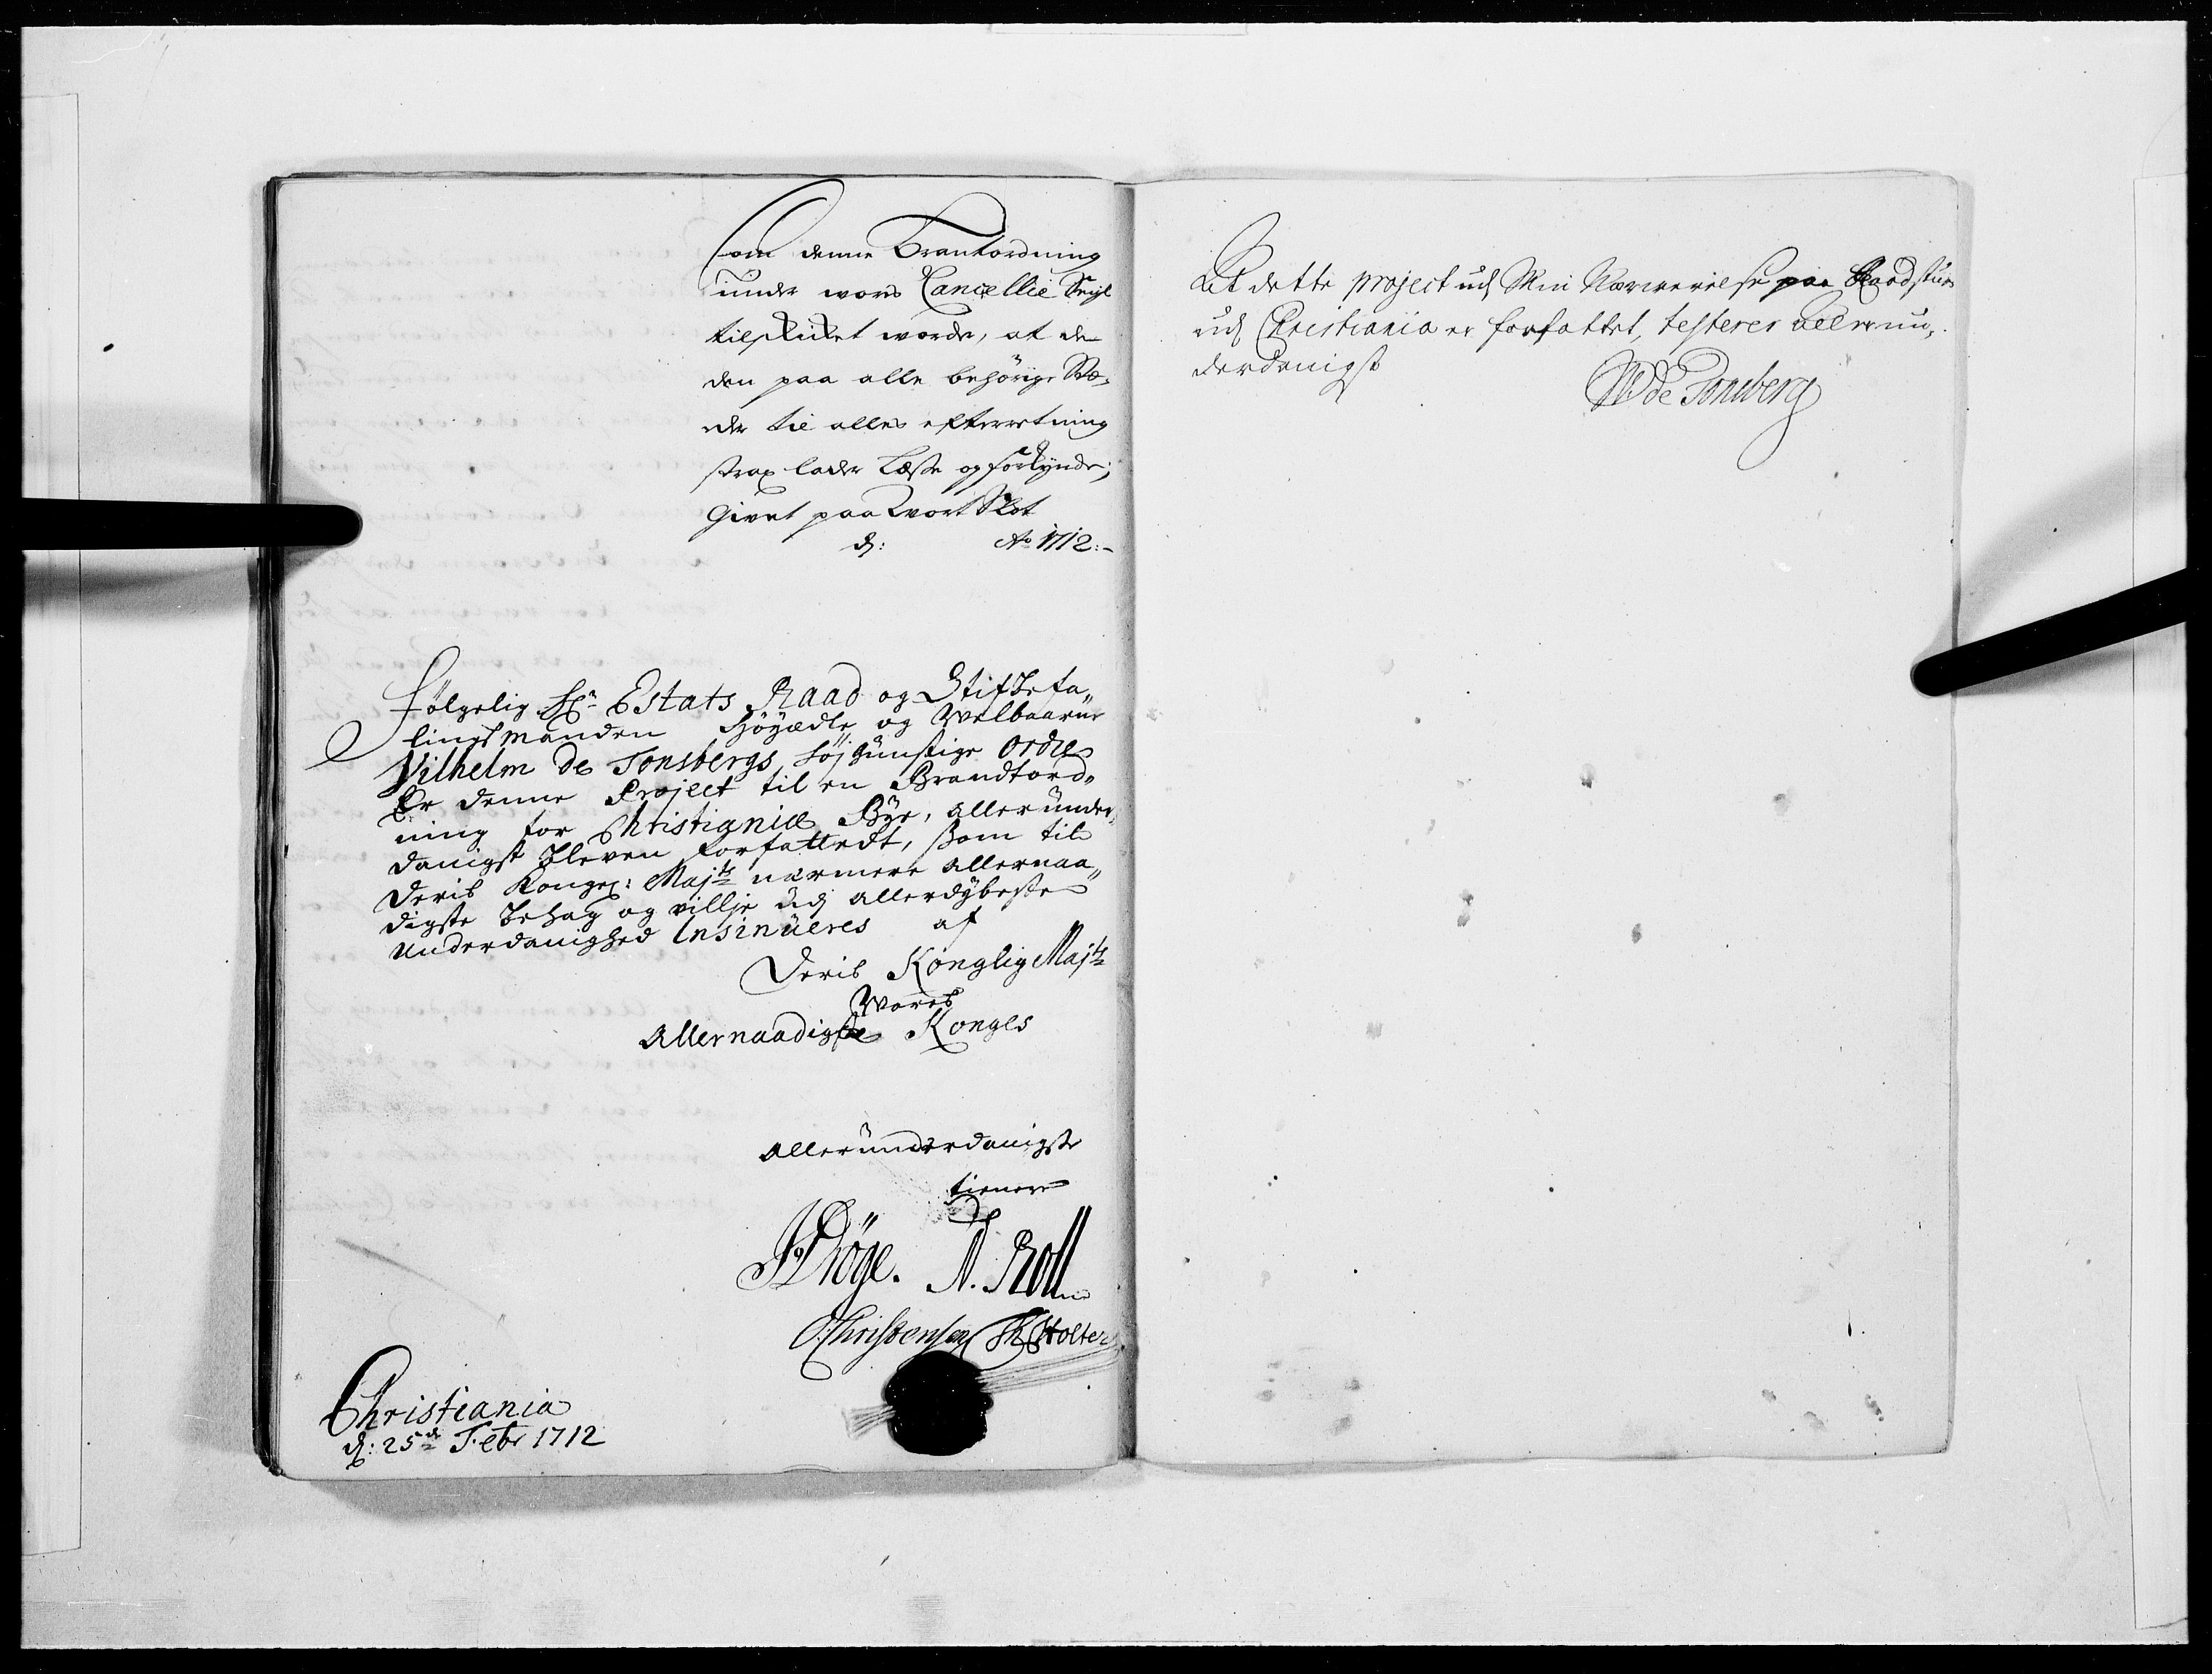 Som denne Brantordning
under wors Cancellie Seigl
tilskicket worder, at de
den paa alle behörige Stæ-
der til alles efterretning
strax lader Læse og forkÿnde;
Givet paa Wort Slot
d: Ao 1712:-
Fölgelig Hr Estats Raad og Stiftbefa„
lings manden Höÿædle og Welbaarne
Vilhelm de Tonsbergs höj Günstige Ordre
Er denne Project til en Brandtord„
ning for Christianiæ Bÿe, alleründer„
danigst bleven forfattedt, som til
Deris Kongel: Majts nærmere allernaa„
digste behag og villje udj allerdÿbeste
Underdanighed Insinüeres af
Deris Konglig Majts
Wores
Allernaadigste Konges
alleründerdanigste
tienere
N. Roll
Christensen
Christiania
d: 25de Febr 1712
At dette project udj Min Nærverelse paa Raadstuen
udj Christiania er forfattet, testerer allerun„
derdanigst
W de Tonsberg